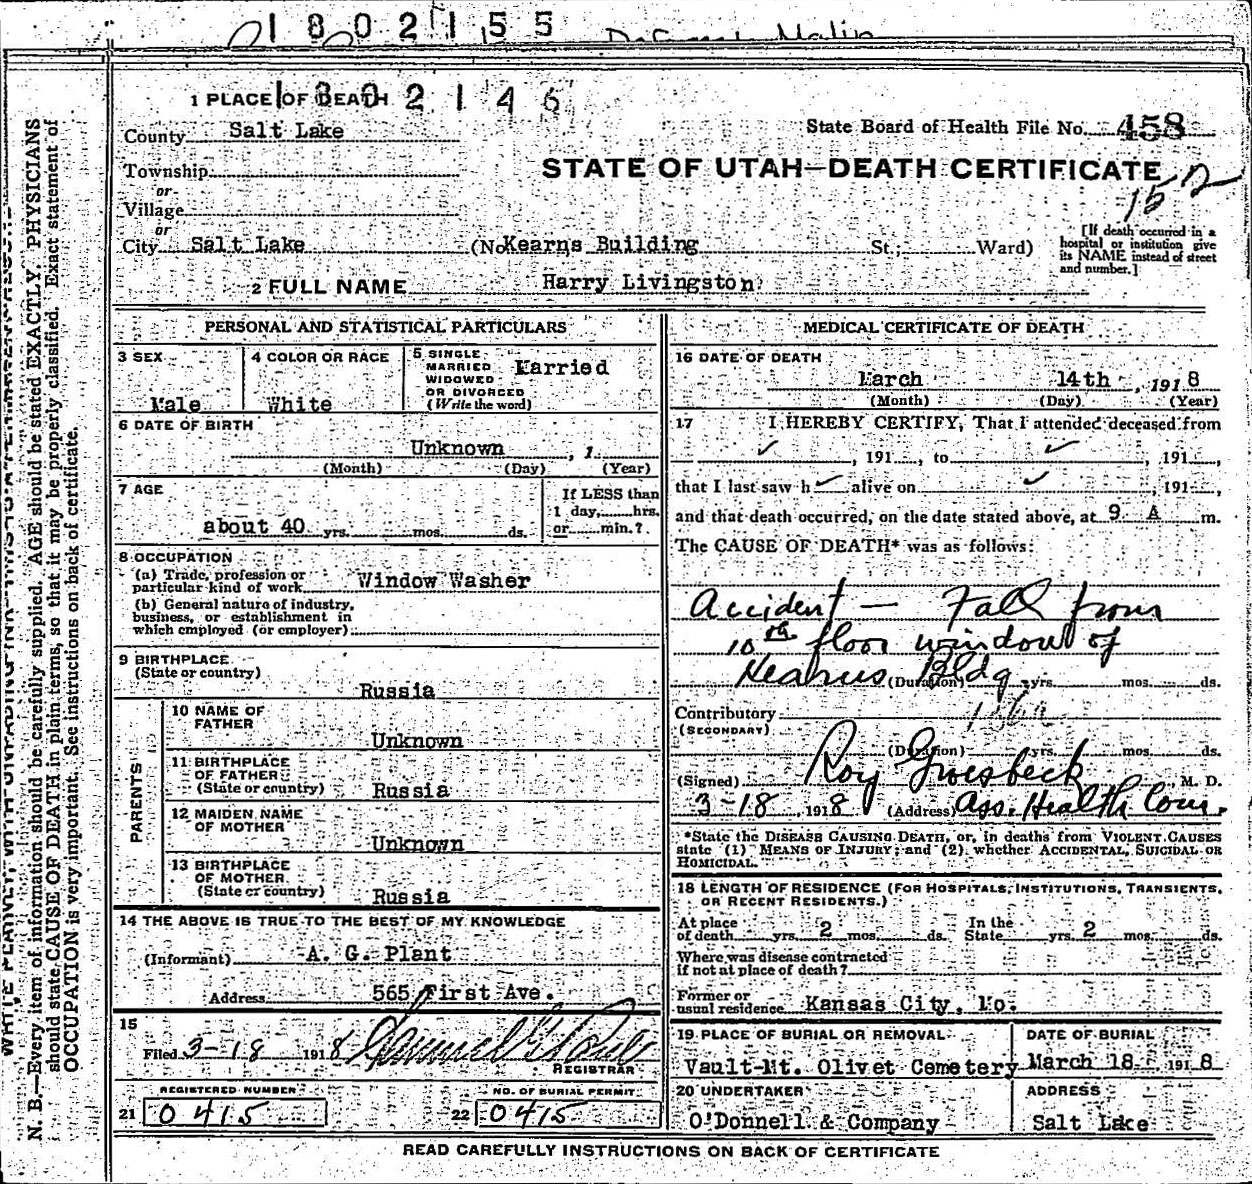 1802155
1802146
1 PLACE OF DEATH
County Salt Lake
State Board of Health File No. 458
Township
STATE OF UTAH—DEATH CERTIFICATE
or
152
Village
or
City Salt Lake (No Kearns Building St.; Ward)
[If death occurred in a
hospital or institution give
its NAME instead of street
and number.]
2 FULL NAME Harry Livingston
PERSONAL AND STATISTICAL PARTICULARS
3 SEX Male
4 COLOR OR RACE White
5 SINGLE
MARRIED
WIDOWED
OR DIVORCED
(Write the word)
Married
6 DATE OF BIRTH
Unknown , 1
(Month) (Day) (Year)
7 AGE
about 40 yrs. mos. ds.
If LESS than
1 day, hrs.
or min.?
8 OCCUPATION
(a) Trade, profession or
particular kind of work Window Washer
(b) General nature of industry,
business, or establishment in
which employed (or employer)
9 BIRTHPLACE
(State or country)
Russia
PARENTS
10 NAME OF
FATHER
Unknown
11 BIRTHPLACE
OF FATHER
(State or country) Russia
12 MAIDEN NAME
OF MOTHER
Unknown
13 BIRTHPLACE
OF MOTHER
(State or country) Russia
14 THE ABOVE IS TRUE TO THE BEST OF MY KNOWLEDGE
(Informant) A. G. Plant
Address 565 First Ave.
15
Filed 3-18 1918
REGISTRAR
REGISTERED NUMBER
21 0415
NO. OF BURIAL PERMIT
22 0415
MEDICAL CERTIFICATE OF DEATH
16 DATE OF DEATH
March 14th , 1918
(Month) (Day) (Year)
17 I HEREBY CERTIFY, That I attended deceased from
✓ , 191 , to ✓ , 191 ,
that I last saw h ✓ alive on ✓ , 191 ,
and that death occurred, on the date stated above, at 9 A m.
The CAUSE OF DEATH* was as follows:
Accident — Fall from
10th floor window of
Kearns Bldg
(Duration) yrs. mos. ds.
Contributory
(SECONDARY)
(Duration) yrs. mos. ds.
(Signed) Roy Groesbeck M. D.
3-18 , 1918 (Address) Ass. Health Com.
*State the DISEASE CAUSING DEATH, or, in deaths from VIOLENT CAUSES
state (1) MEANS OF INJURY; and (2) whether ACCIDENTAL, SUICIDAL OR
HOMICIDAL.
18 LENGTH OF RESIDENCE (FOR HOSPITALS, INSTITUTIONS, TRANSIENTS,
OR RECENT RESIDENTS.)
At place
of death yrs. 2 mos. ds.
In the
State yrs. 2 mos. ds.
Where was disease contracted
if not at place of death?
Former or
usual residence Kansas City, Mo.
19 PLACE OF BURIAL OR REMOVAL
Vault-Mt. Olivet Cemetery
DATE OF BURIAL
March 18 1918
20 UNDERTAKER
O'Donnell & Company
ADDRESS
Salt Lake
READ CAREFULLY INSTRUCTIONS ON BACK OF CERTIFICATE
N. B.—Every item of information should be carefully supplied. AGE should be stated EXACTLY. PHYSICIANS
should state CAUSE OF DEATH in plain terms, so that it may be properly classified. Exact statement of
OCCUPATION is very important. See instructions on back of certificate.